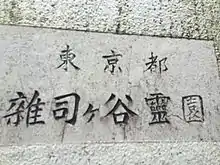 東京都
雜司ヶ谷靈園